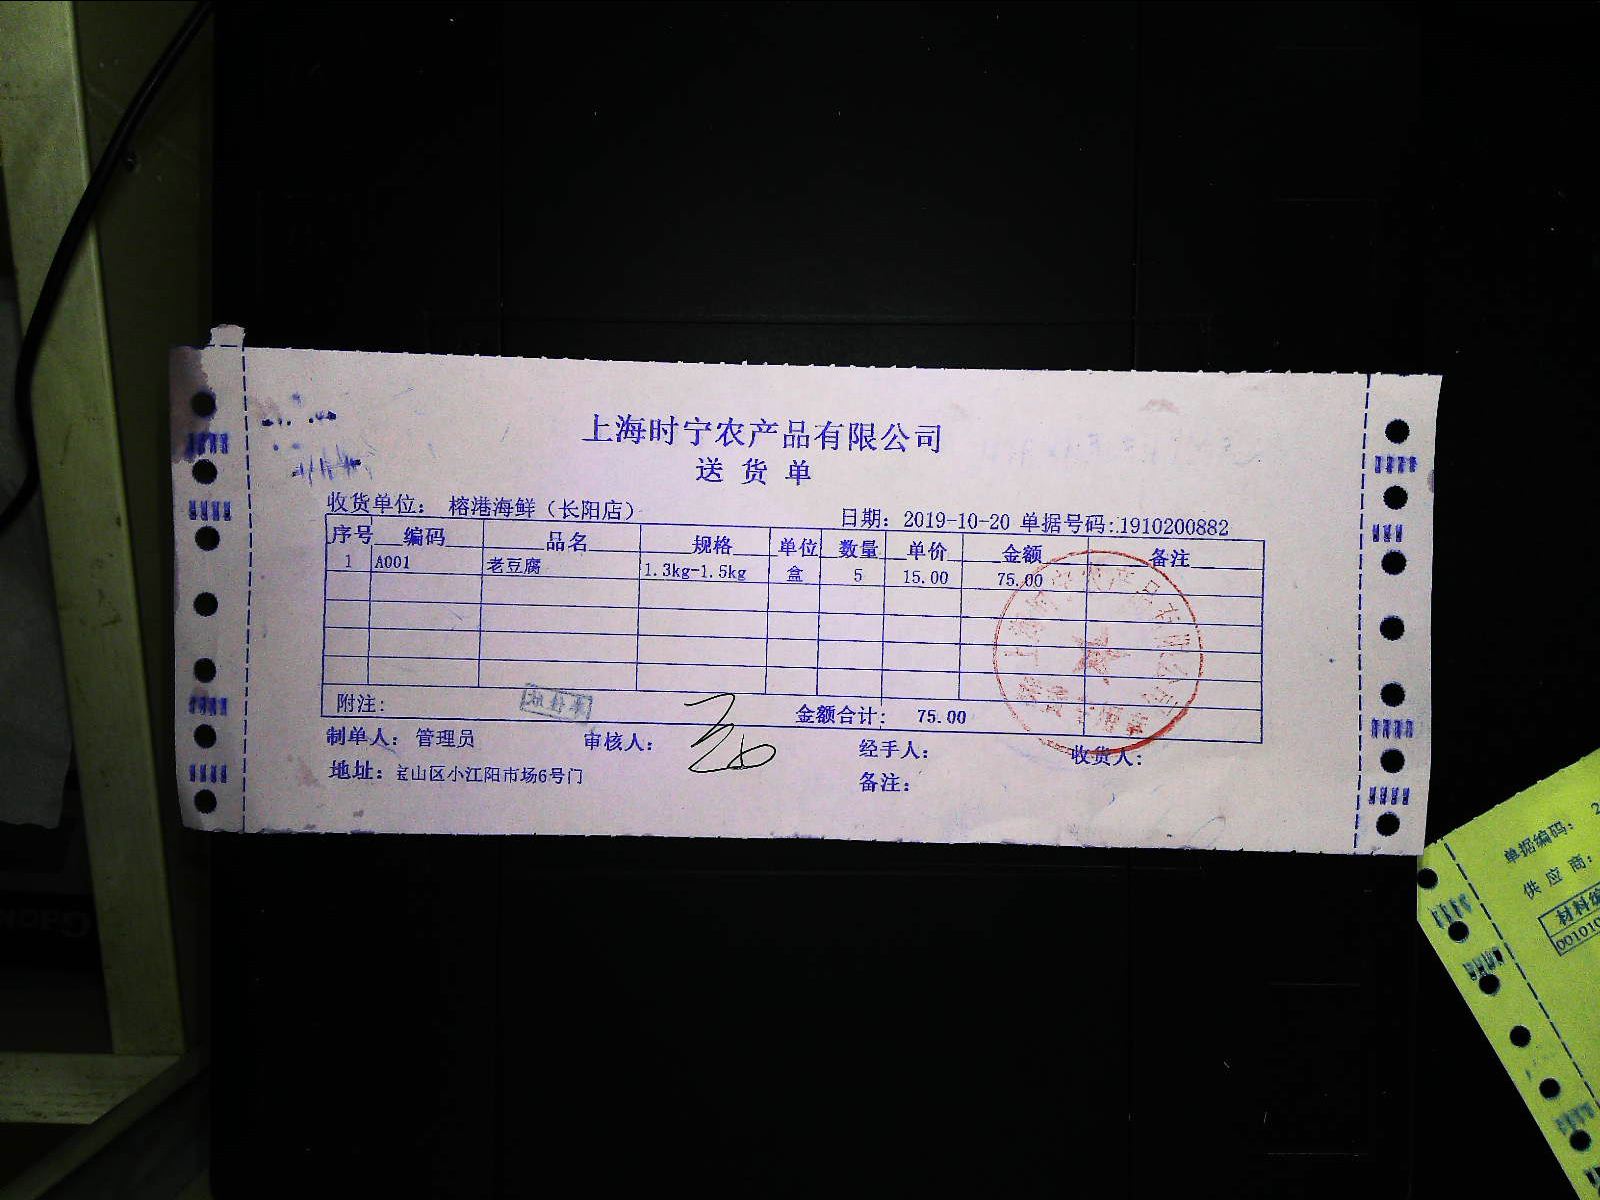 上海时宁农产品有限公司
送货单
收货单位: 榕港海鲜（长阳店） 日期: 2019-10-20 单据号码:.1910200882
序号 编码 品名 规格 单位 数量 单价 金额 备注
1 A001 老豆腐 1.3kg-1.5kg 盒 5 15.00 75.00
附注: 金额合计: 75.00
制单人: 管理员 审核人: 经手人: 收货人:
地址: 宝山区小江阳市场6号门 备注:
单据编码: 2
供应商:
材料编
00101